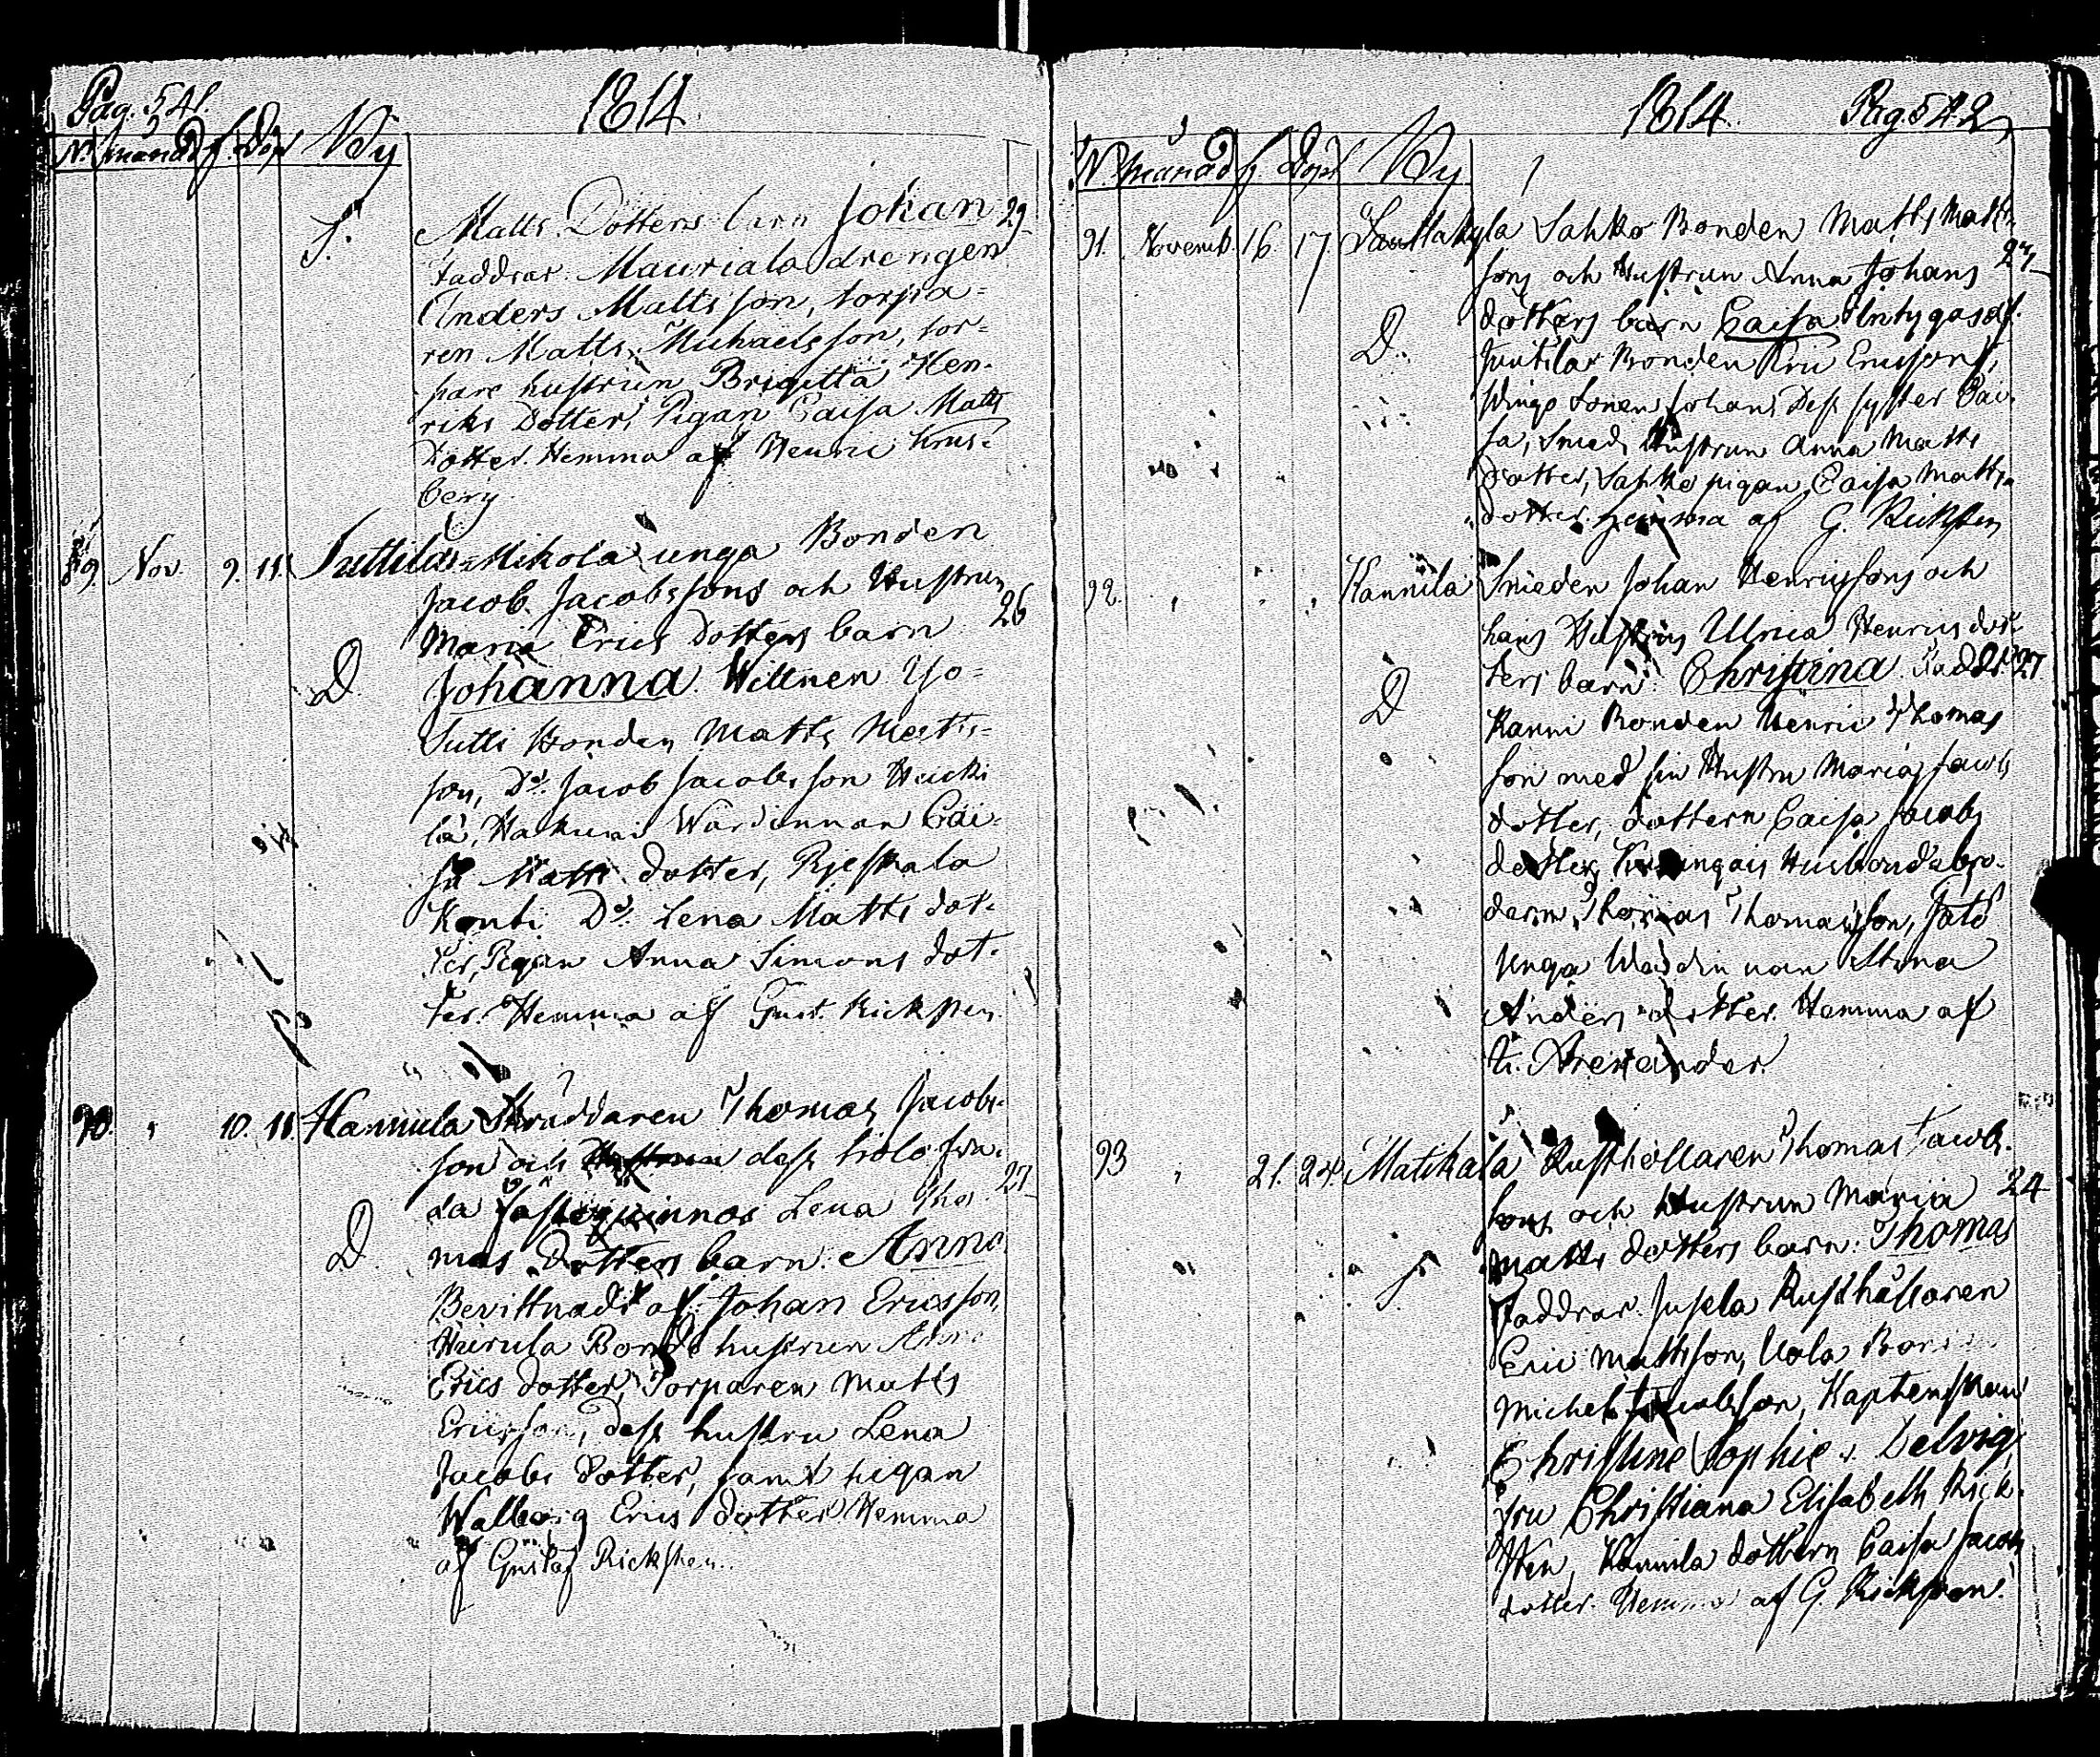 Pag. 541. 1814
No månad f. Döpt By
S. Matts Dotters barn Johan 29
Faddrar. Mauriala drengen
Anders Mattsson, torpa=
ren Matts Michaelsson, tor=
pare hustrun Brigitta Hen-
riks Dotter, Pigan Caisa Matts
Dotter. Hemma af Henric Krus-
berg.
89. Nov. 9. 11. Suttila Mikola unga Bonden
Jacob Jacobssons och Hustrun
Maria Erics Dotters barn 26
D. Johanna. Wittnen Yo=
Sutti Bonden Matts Matts=
son, Do. Jacob Jacobsson Heicki
lä, Wärdinnan Cai-
sa Matts dotter,
Do. Lena Matts dot-
ter, Pigan Anna Simons dot-
ter. Hemma af Gust. Ricksten.
90. " 10. 11. Hannula Skräddaren Thomas Jacobs-
son och Hustrun dess
da Lena Tho- 27
D. mas Dotters barn: Anna
Bevittnadt af Johan Ericsson,
Heicula Bonde hustrun Anna
Erics dotter, Torparen Matts
Ericsson, dess hustru Lena
Jacobs dotter, samt pigan
Walborg Erics dotter Hemma
af Gustaf Ricksten.
1814. Pag 542
No månad f. Döpt By
91. Novemb. 16. 17. Sauttakyla Sahko Bonden Matts Matts-
sons och Hustrun Anna Johans 27
D. dotters barn Caisa Untygas af
Bonden Ericsson,
sonen Johan, Dess syster Cai-
sa, Smeds Hustrun Anna Matts
dotter, Sahko pigan Caisa Matts
dotter. Hemma af G. Ricksten
92. " " " Kannila Smeden Johan Henricssons och
hans Hustrus Ulrica Henrics dot-
D ters barn: Christina. Faddr. 27
Kanni Bonden Henric Thomas
son med sin Hustru Maria Jacobs
dotter, dottern Caisa Jacobs
dotter, Husbondabro-
dern Thomas Thomasson,
unga Wärdinnan Stina
Anders dotter. Hemma af
93 " 21. 24. Matikala Rusthållaren Thomas Jacobs-
sons och Hustrun Maria 24
S. Matts dotters barn: Thomas
Faddrar. Jusela Rusthållaren
Eric Mattsson, Uola Bonden
Michel Jacobsson, Kaptenskan
Christine Sophie v. Delvig,
Fru Christiana Elisabeth Rick-
sten, Kannila dottern Caisa Jacobs
dotter. Hemma af G. Ricksten.